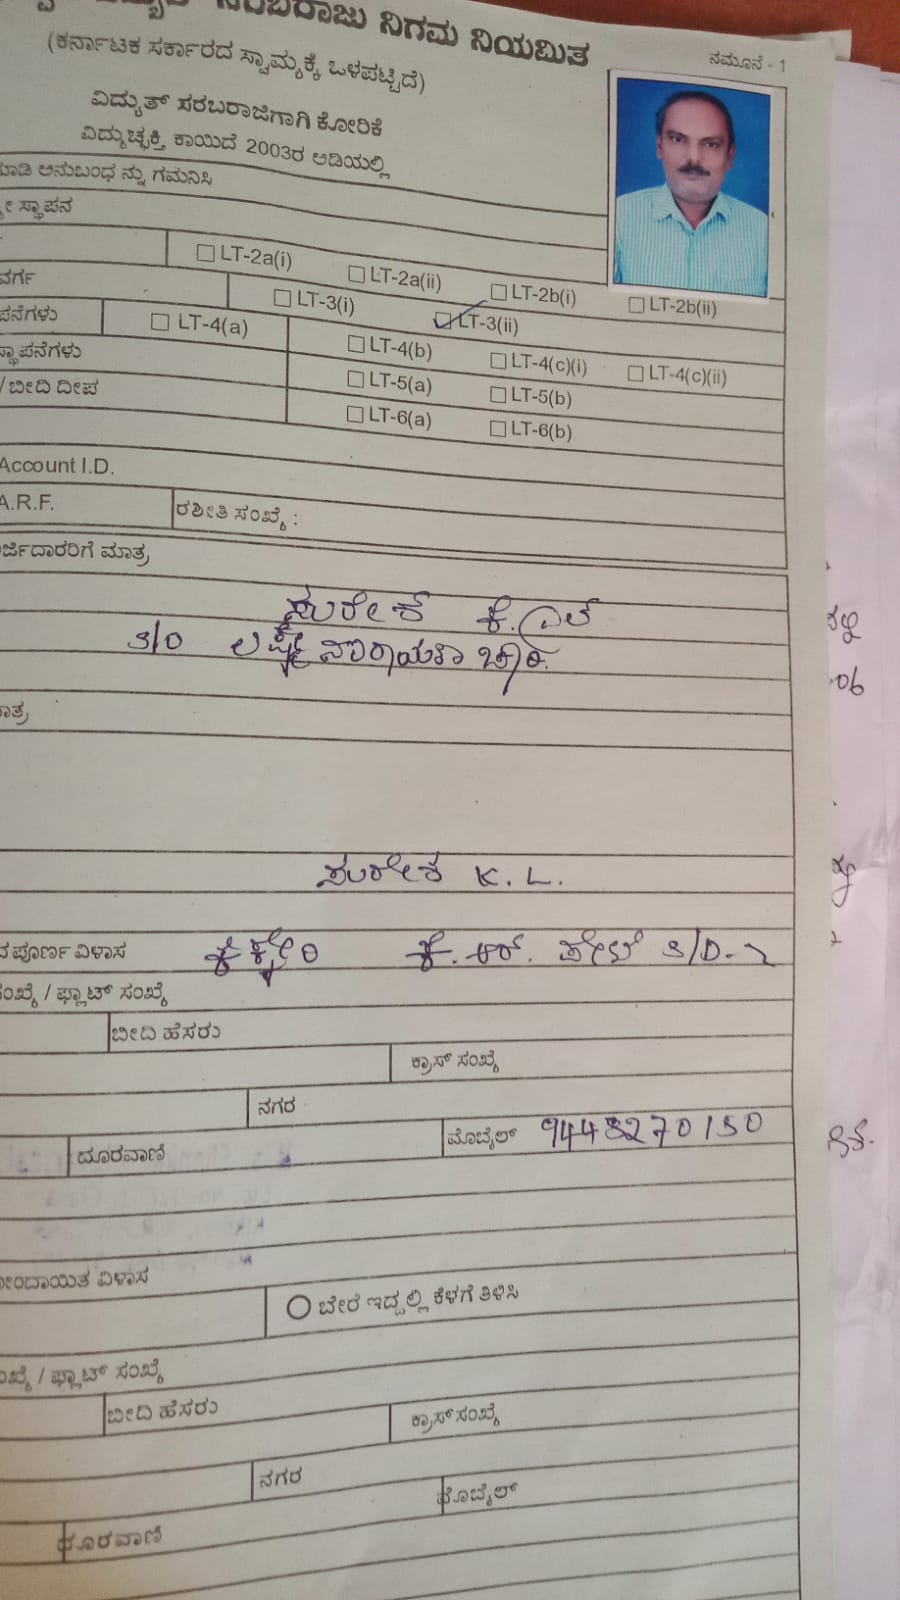 ಸರಬರಾಜು ನಿಗಮ ನಿಯಮಿತ
ನಮೂನೆ - 1
(ಕರ್ನಾಟಕ ಸರ್ಕಾರದ ಸ್ವಾಮ್ಯಕ್ಕೆ ಒಳಪಟ್ಟಿದೆ)
ವಿದ್ಯುತ್ ಸರಬರಾಜಿಗಾಗಿ ಕೋರಿಕೆ
ವಿದ್ಯುಚ್ಛಕ್ತಿ ಕಾಯಿದೆ 2003ರ ಅಡಿಯಲ್ಲಿ
ಅನುಬಂಧ ನ್ನು ಗಮನಿಸಿ
ಸ್ಥಾಪನ
LT-2a(i) LT-2a(ii) LT-2b(i) LT-2b(ii)
ವರ್ಗ LT-3(i) LT-3(ii)
LT-4(a) LT-4(b) LT-4(c)(i) LT-4(c)(ii)
LT-5(a) LT-5(b)
/ ಬೀದಿ ದೀಪ LT-6(a) LT-6(b)
Account I.D.
A.R.F. ರಶೀತಿ ಸಂಖ್ಯೆ :
ರ್ಜಿದಾರರಿಗೆ ಮಾತ್ರ
ಸುರೇಶ್ ಕೆ.ಎಲ್
S/O ಲಕ್ಷ್ಮೀನಾರಾಯಣಾ ಚಾರಿ
ಸುರೇಶ K. L.
ಪೂರ್ಣ ವಿಳಾಸ ಕಿಕ್ಕೇರಿ ಕೆ. ಆರ್. ಪೇಟೆ S/D-2
ಸಂಖ್ಯೆ / ಫ್ಲಾಟ್ ಸಂಖ್ಯೆ
ಬೀದಿ ಹೆಸರು
ಕ್ರಾಸ್ ಸಂಖ್ಯೆ
ನಗರ
ದೂರವಾಣಿ ಮೊಬೈಲ್ 9448270150
ವಿಳಾಸ
ಬೇರೆ ಇದ್ದಲ್ಲಿ ಕೆಳಗೆ ತಿಳಿಸಿ
/ ಫ್ಲಾಟ್ ಸಂಖ್ಯೆ
ಬೀದಿ ಹೆಸರು ಕ್ರಾಸ್ ಸಂಖ್ಯೆ
ನಗರ
ದೂರವಾಣಿ ಮೊಬೈಲ್